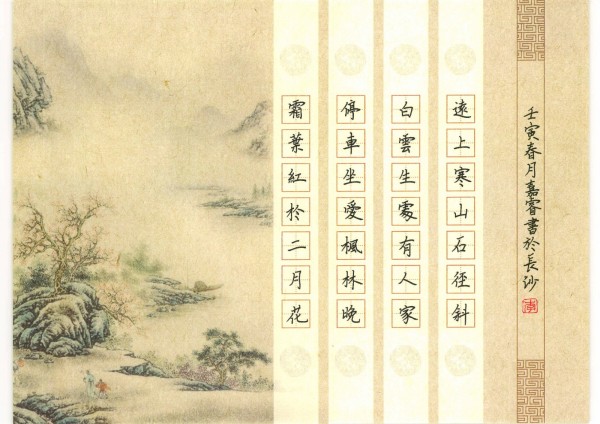 遠上寒山石徑斜
白雲生處有人家
停車坐愛楓林晚
霜葉紅扵二月花
壬寅春月嘉睿書於長沙